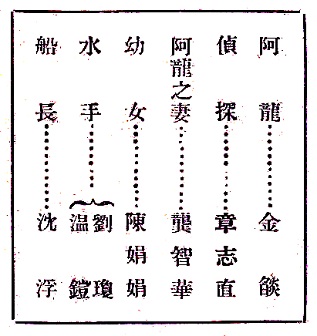 阿龍⋯⋯⋯金燄
偵探⋯⋯⋯章志直
阿龍之妻⋯⋯⋯龔智華
幼女⋯⋯⋯陳娟娟
水手⋯⋯⋯{劉瓊
温鎧
船長⋯⋯⋯沈浮